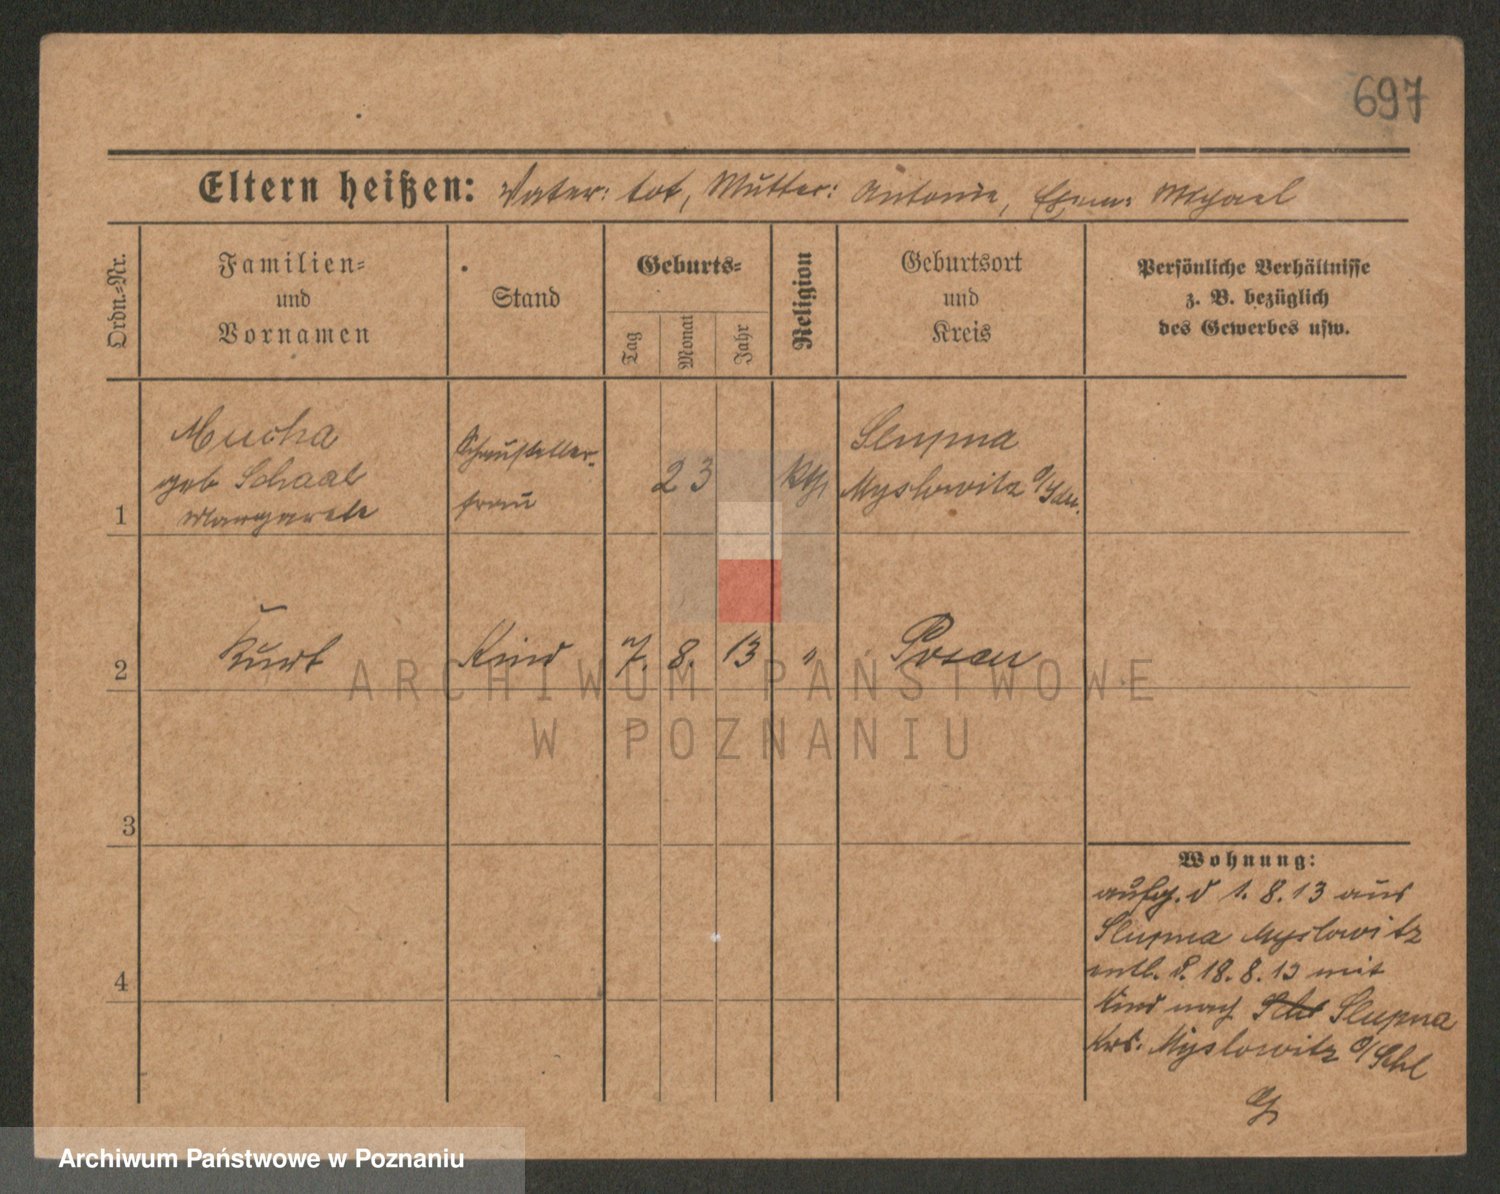 697
Eltern heißen: Vater: tot, Mutter: Antonie, Michael
Ordn.=Nr.
Familien=
und
Vornamen
Stand
Geburts=
Tag
Monat
Jahr
Religion
Geburtsort
und
Kreis
Persönliche Verhältnisse
z. B. bezüglich
des Gewerbes usw.
1
Mucha
geb Schaal
Margarete
Schausteller-
frau
23
kth
Slupna
Myslowitz
2
Kurt
Kind
7. 8. 13
"
Posen
3
4
Wohnung:
aufg. d 1. 8. 13 aus
Slupna Myslowitz
entl. d. 18. 8. 13 mit
Kind nach Slupna
Krs. Myslowitz O/Schl
ARCHIWUM PAŃSTWOWE
W POZNANIU
Archiwum Państwowe w Poznaniu